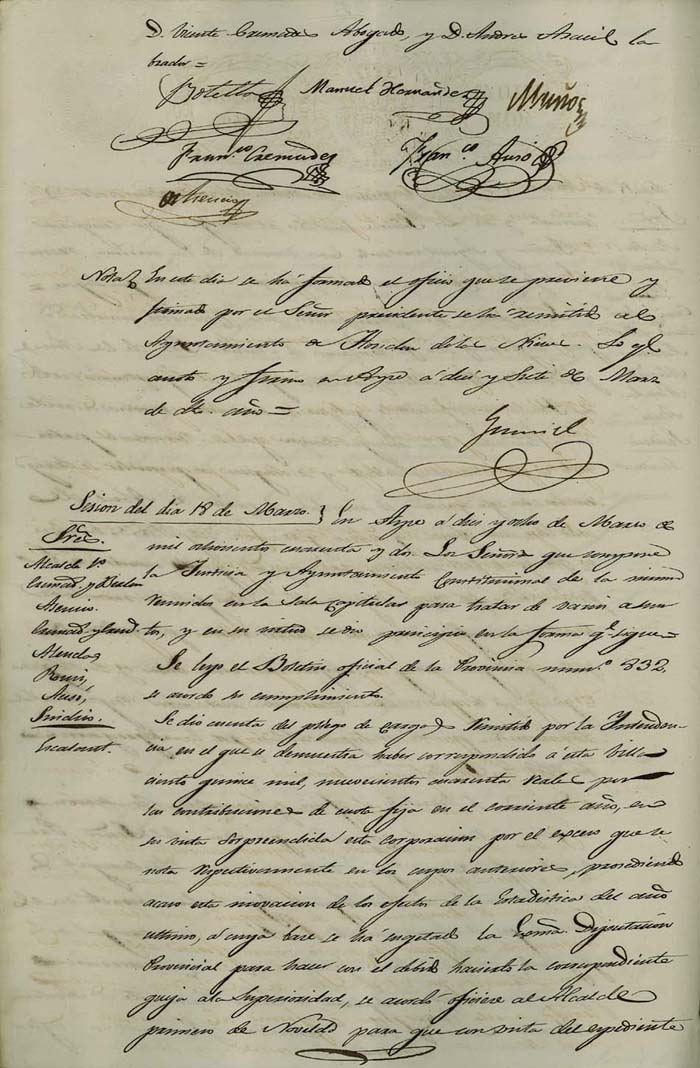 D. Vicente Cremades Abogado, y D. Andres Aracil la
brador =
Botella Manuel Hernandez Muñoz
Fran.co Cremades Fran.co Ausó
Atencia
Nota En este dia se há formado el oficio que se previene y
firmado por el Señor presidente se há remitido al
Ayuntamiento de Hondon de las Nieves. Lo q.l
anoto y firmo en Aspe á diez y siete de Marzo
de dho. año =
Sesion del dia 18 de Marzo. } En Aspe á diez y ocho de Marzo de
Sres.
mil ochocientos cuarenta y dos. Los Señores que componen
Alcalde 1º
la Justicia y Ayuntamiento Constitucional de la misma
Cremad.s y
Atencia.
reunidos en la Sala Capitular para tratar de varios asun
tos, y en su virtud se dio principio en la forma q.e sigue =
Se leyo el Boletin oficial de la Provincia num.º 832,
Ausó,
se acordo su cumplimiento.
Sindico.
Se dio cuenta del pliego de cargos remitido por la Intenden
Escalant.
cia en el que se demuestra haber correspondido á esta Villa
ciento quince mil, nuevecientos cuarenta reales por
las contribuciones de cuota fija en el corriente año, en
su vista sorprendida esta corporacion por el exceso que se
nota respectivamente en los cupos anteriores, procediendo
acaso esta inovacion de los efectos de la Estadistica del año
ultimo, á cuya base se há sugetado la Exma. Diputacion
Provincial para hacer con el debido acierto la correspondiente
queja á la Superioridad, se acordó oficiese al Alcalde
primero de Novelda para que con vista del espediente